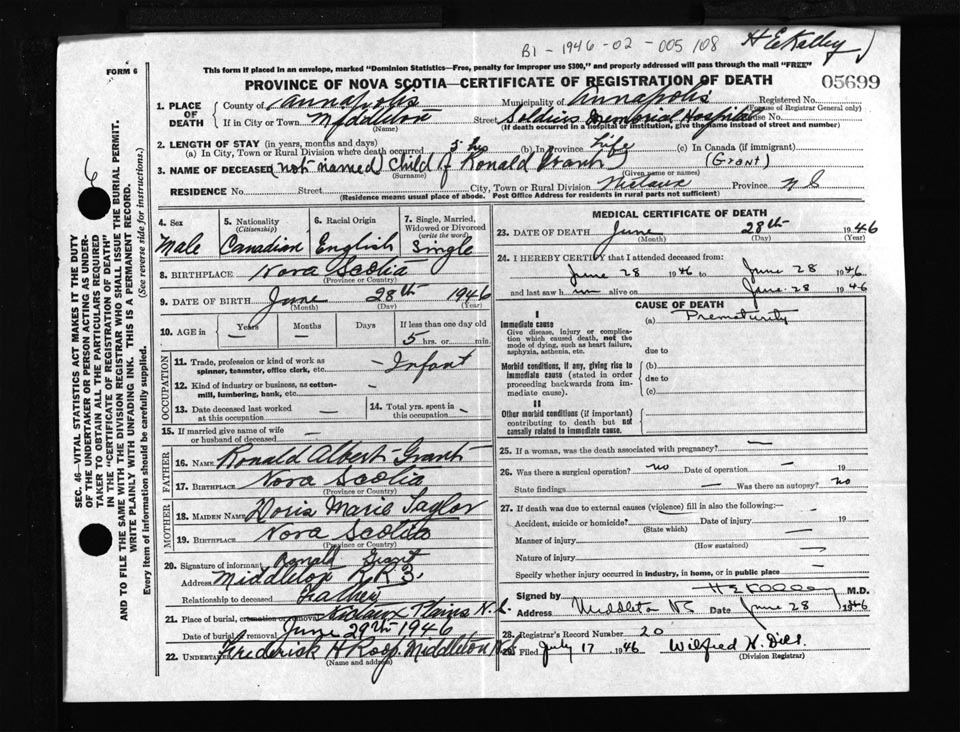 B1 - 1946 - 02 - 005108
H E Kelley
FORM 6
This form if placed in an envelope, marked "Dominion Statistics—Free, penalty for improper use $300," and properly addressed will pass through the mail "FREE"
PROVINCE OF NOVA SCOTIA—CERTIFICATE OF REGISTRATION OF DEATH
05699
1. PLACE OF DEATH
County of Annapolis
Municipality of Annapolis
Registered No.
(For use of Registrar General only)
If in City or Town Middleton
(Name)
Street Soldiers Memorial Hospital
House No.
(If death occurred in a hospital or institution, give the name instead of street and number)
2. LENGTH OF STAY (in years, months and days)
(a) In City, Town or Rural Division where death occurred 5 hrs (b) In Province Life (c) In Canada (if immigrant)
3. NAME OF DECEASED (not named) Child of Ronald Grant (Grant)
(Surname) (Given name or names)
RESIDENCE No. Street City, Town or Rural Division Nictaux Province N S
(Residence means usual place of abode. Post Office Address for residents in rural parts not sufficient)
4. Sex
Male
5. Nationality
(Citizenship)
Canadian
6. Racial Origin
English
7. Single, Married, Widowed or Divorced
(write the word)
Single
8. BIRTHPLACE Nova Scotia
(Province or Country)
9. DATE OF BIRTH June 28th 1946
(Month) (Day) (Year)
10. AGE in Years Months Days If less than one day old
— — 5 hrs. or min.
OCCUPATION
11. Trade, profession or kind of work as spinner, teamster, office clerk, etc. — Infant
12. Kind of industry or business, as cotton-mill, lumbering, bank, etc. —
13. Date deceased last worked at this occupation —
14. Total yrs. spent in this occupation -
15. If married give name of wife or husband of deceased —
FATHER
16. NAME Ronald Albert Grant
17. BIRTHPLACE Nova Scotia
(Province or Country)
MOTHER
18. MAIDEN NAME Doris Marie Taylor
19. BIRTHPLACE Nova Scotia
(Province or Country)
20. Signature of informant Ronald Grant
Address Middleton R R 3.
Relationship to deceased Father
21. Place of burial, cremation or removal Nictaux Plains N.S.
Date of burial or removal June 29th 1946
22. UNDERTAKER Frederick H Roop. Middleton N.S.
(Name and address)
MEDICAL CERTIFICATE OF DEATH
23. DATE OF DEATH June 28th 1946
(Month) (Day) (Year)
24. I HEREBY CERTIFY that I attended deceased from:
June 28 1946 to June 28 1946
and last saw h im alive on June 28 1946
CAUSE OF DEATH
I
Immediate cause
Give disease, injury or complication which caused death, not the mode of dying, such as heart failure, asphyxia, asthenia, etc.
(a) Prematurity
due to
Morbid conditions, if any, giving rise to immediate cause (stated in order proceeding backwards from immediate cause).
(b)
due to
(c)
II
Other morbid conditions (if important) contributing to death but not causally related to immediate cause.
25. If a woman, was the death associated with pregnancy? —
26. Was there a surgical operation? no Date of operation — 19
State findings — Was there an autopsy? no
27. If death was due to external causes (violence) fill in also the following:—
Accident, suicide or homicide? Date of injury — 19
(State which)
Manner of injury —
(How sustained)
Nature of injury —
Specify whether injury occurred in industry, in home, or in public place
Signed by H E Kelley M.D.
Address Middleton NS Date June 28 1946
28. Registrar's Record Number 20
29. Filed July 17 1946 Wilfred H. Dill.
(Division Registrar)
SEC. 46—VITAL STATISTICS ACT MAKES IT THE DUTY
OF THE UNDERTAKER OR PERSON ACTING AS UNDER-
TAKER TO OBTAIN ALL THE PARTICULARS REQUIRED
IN THE "CERTIFICATE OF REGISTRATION OF DEATH"
AND TO FILE THE SAME WITH THE DIVISION REGISTRAR WHO SHALL ISSUE THE BURIAL PERMIT.
WRITE PLAINLY WITH UNFADING INK. THIS IS A PERMANENT RECORD.
Every item of information should be carefully supplied. (See reverse side for instructions.)
6